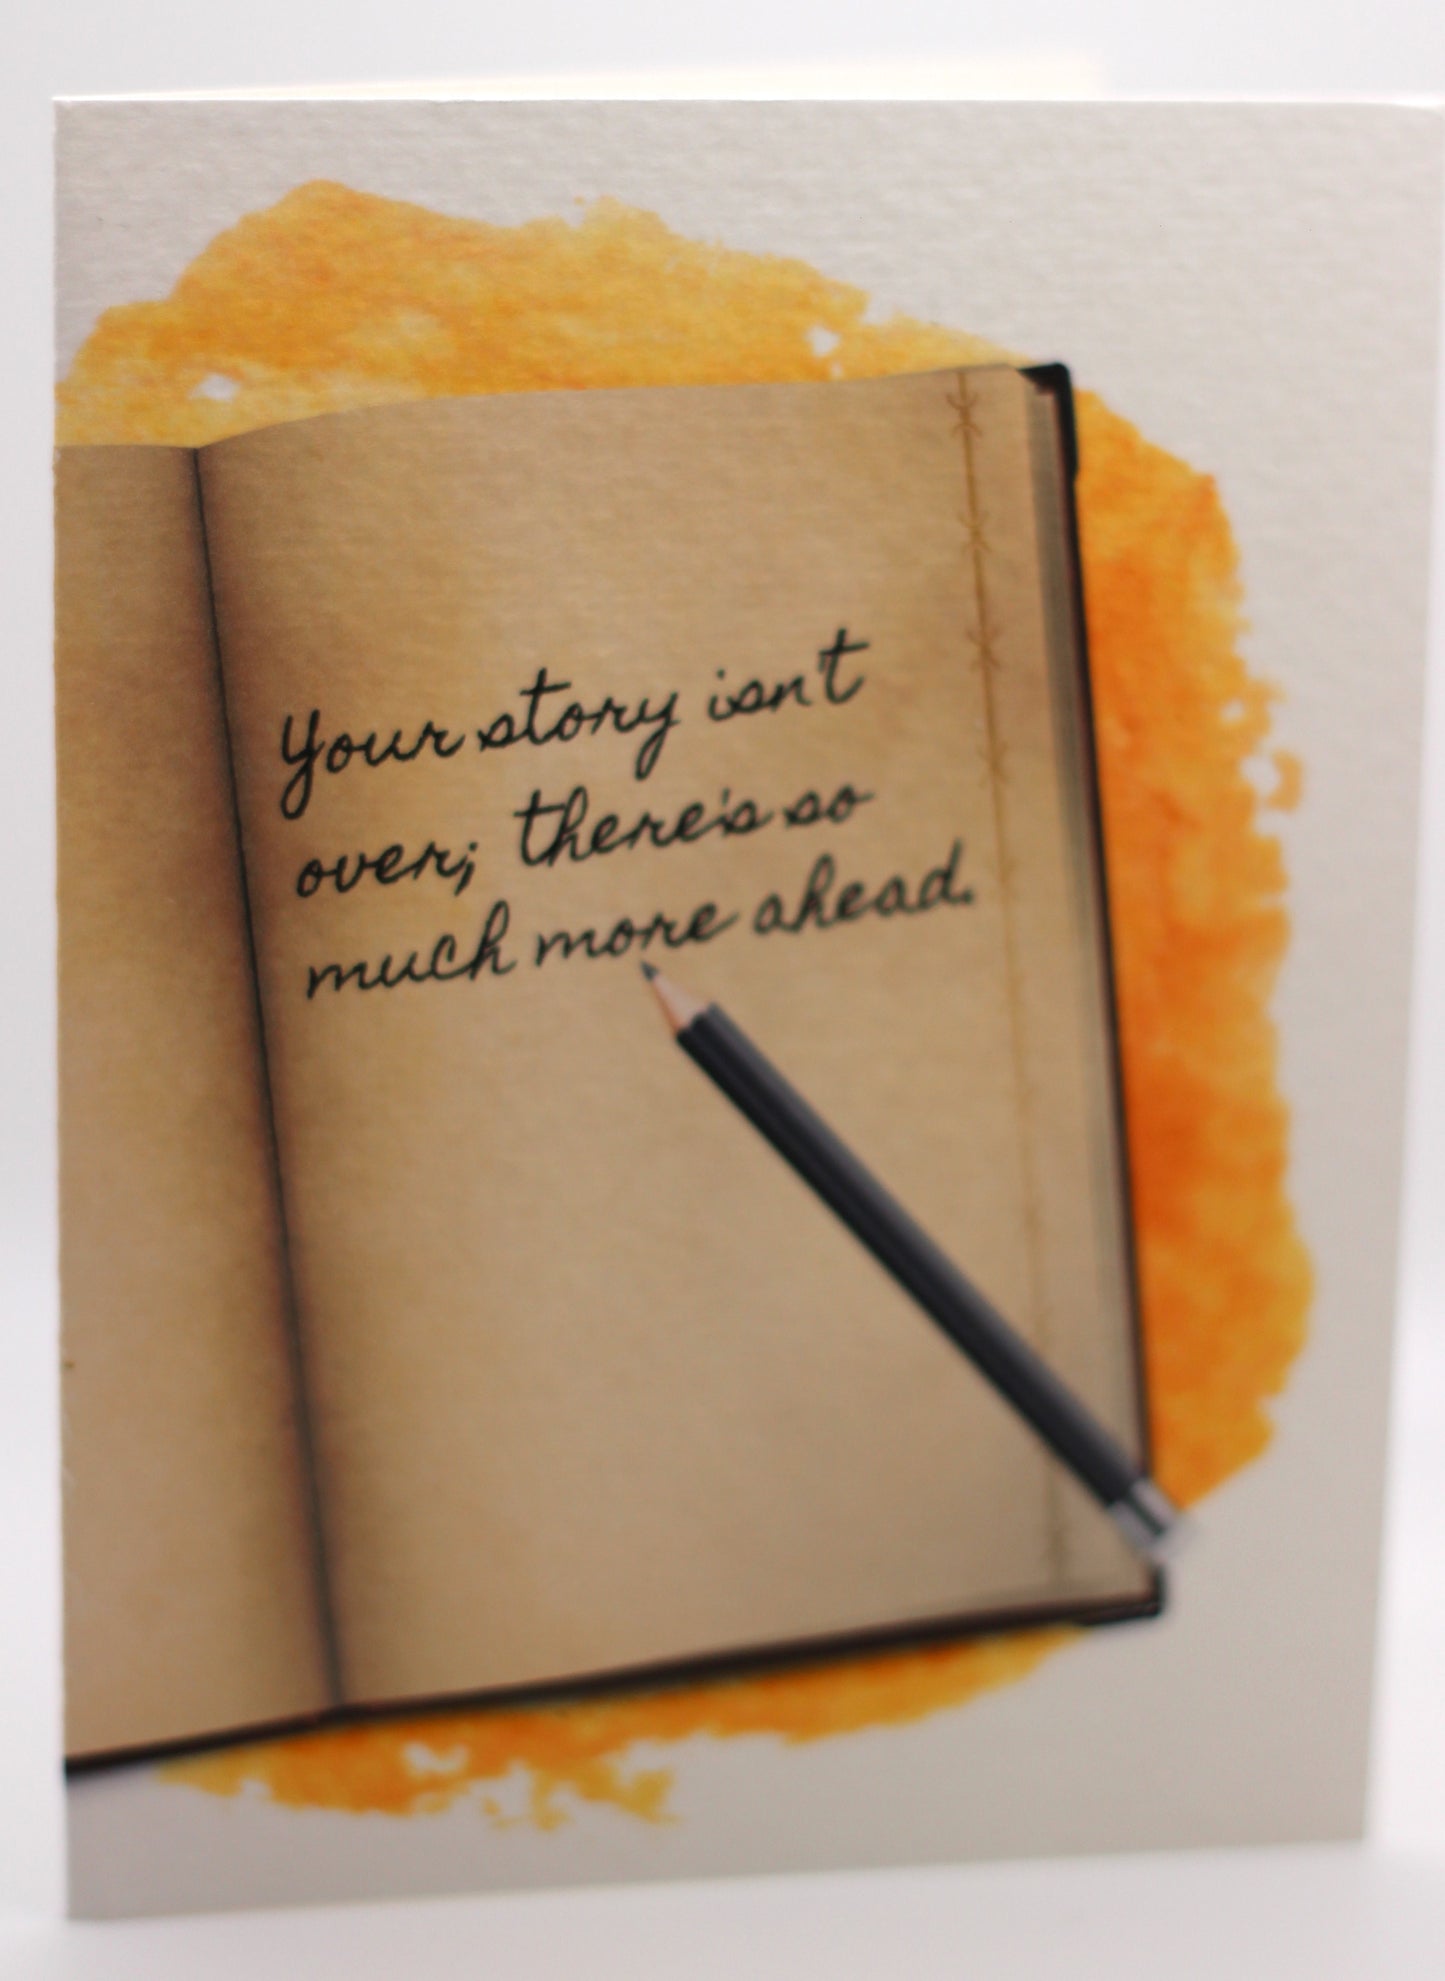 Your story isn't
over; there's so
much more ahead.